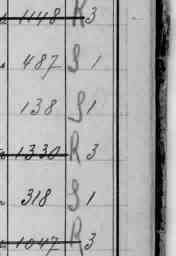 1148 R 3
487 S 1
138 S 1
1330 R 3
318 S 1
1047 R 3